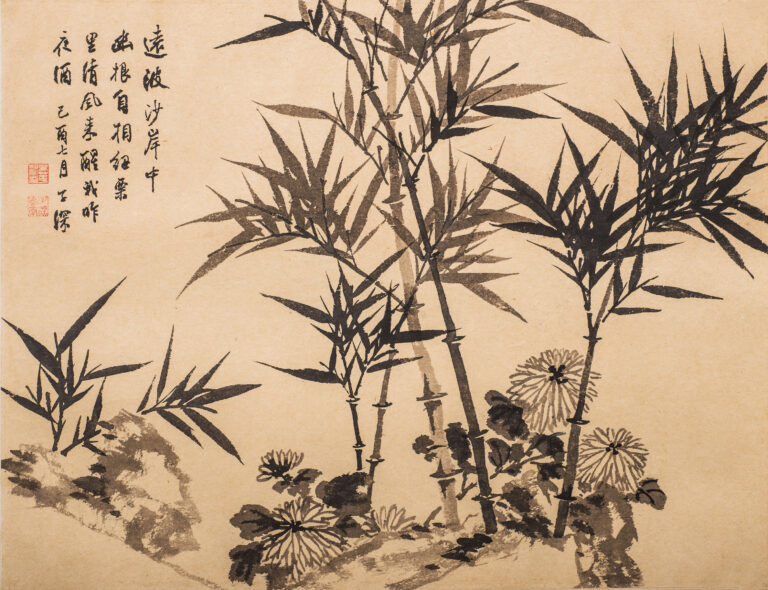 遠波沙岸中
幽根自相紐葉
里清風來醒我昨
夜酒 己酉七月 子深